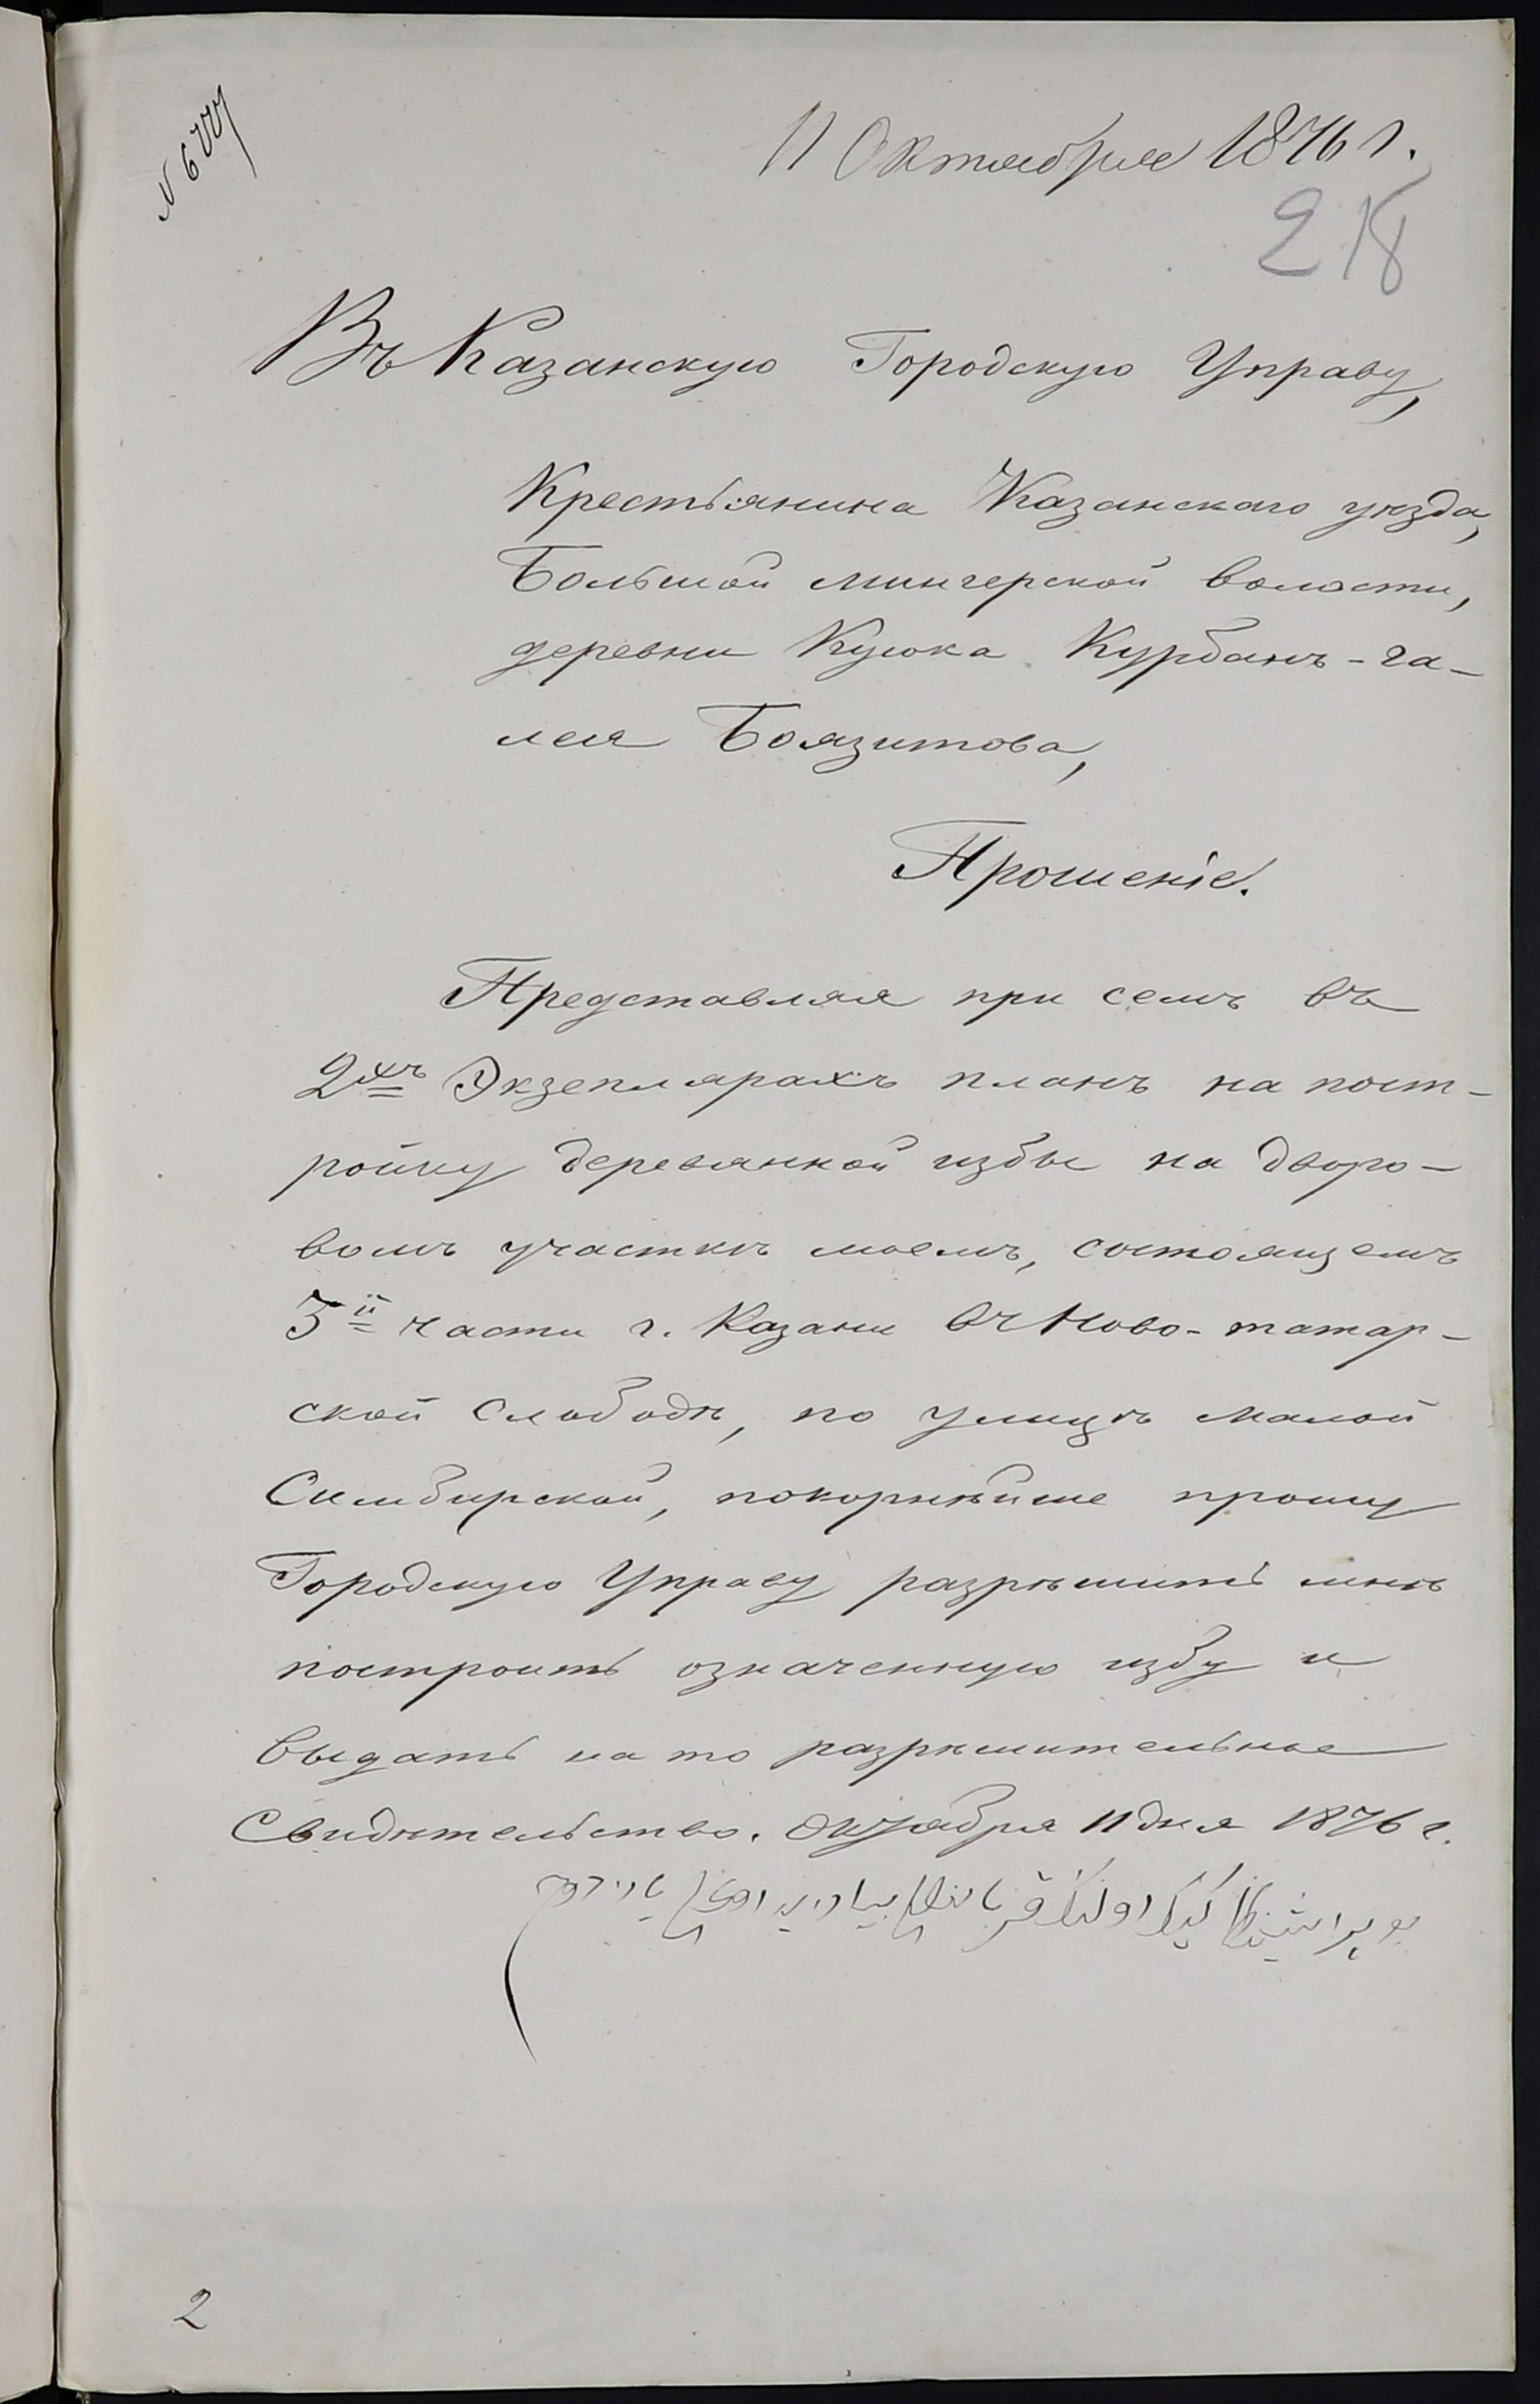 11 Октября 1876 г.
218
Въ Казанскую Городскую Управу,
Крестьянина Казанскаго уѣзда,
Большой мингерской волости,
деревни Куюка Курбанъ-га-
лея Боязитова,
Прошеніе.
Представляя при семъ въ
2хъ Экземплярахъ планъ на пост-
ройку деревянной избы на дворо-
вомъ участкѣ моемъ, состоящемъ
3й части г. Казани въ Ново-татар-
ской Слободѣ, по улицѣ малой
Симбирской, покорнѣйше прошу
Городскую Управу разрѣшить мнѣ
построить означенную избу и
выдать на то разрѣшительное
Свидѣтельство. Октября 11 дня 1876 г.
2